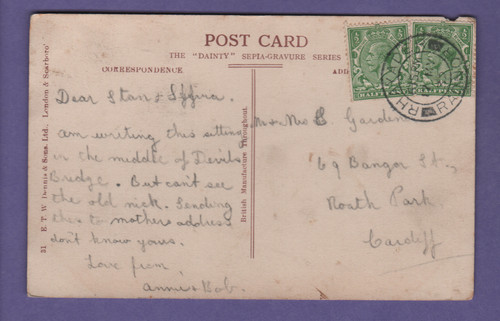 POST CARD
THE "DAINTY" SEPIA-GRAVURE SERIES
CORRESPONDENCE
ADD
Dear Stan +
am writing this sitting
in the middle of Devils
Bridge. But can't see
the old nick. Sending
this to mothers address
don't know yours.
Love from,
Annie + Bob.
Mr + Mrs Garden
69 Bangor St.,
Roath Park,
Cardiff
31 E. T. W. Dennis & Sons, Ltd., London & Scarboro'
British Manufacture Throughout.